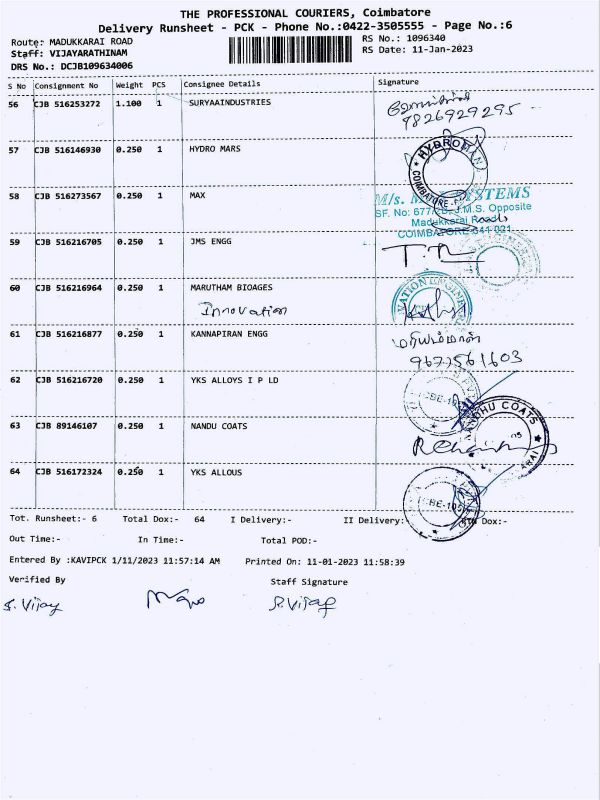 THE PROFESSIONAL COURIERS, Coimbatore
Delivery Runsheet - PCK - Phone No.:0422-3505555 - Page No.:6
Route: MADUKKARAI ROAD
RS No.: 1096340
Staff: VIJAYARATHINAM
RS Date: 11-Jan-2023
DRS No.: DCJB109634006
S No Consignment No Weight PCS Consignee Details Signature
56 CJB 516253272 1.100 1 SURYAAINDUSTRIES
9826929295
57 CJB 516146930 0.250 1 HYDRO MARS
HYDROMAN
COIMBATORE
58 CJB 516273567 0.250 1 MAX
M/s. SYSTEMS
SF. No: 677 J.M.S. Opposite
Madukkarai Road
COIMBATORE-641 021
59 CJB 516216705 0.250 1 JMS ENGG
60 CJB 516216964 0.250 1 MARUTHAM BIOAGES
Innovation
61 CJB 516216877 0.250 1 KANNAPIRAN ENGG
மரியம்மாள்
9677561603
62 CJB 516216720 0.250 1 YKS ALLOYS I P LD
CBE-105
63 CJB 89146107 0.250 1 NANDU COATS
NANDHU COATS
64 CJB 516172324 0.250 1 YKS ALLOUS
CBE-105
Tot. Runsheet:- 6 Total Dox:- 64 I Delivery:- II Delivery: Dox:-
Out Time:- In Time:- Total POD:-
Entered By :KAVIPCK 1/11/2023 11:57:14 AM Printed On: 11-01-2023 11:58:39
Verified By Staff Signature
S. Vijay